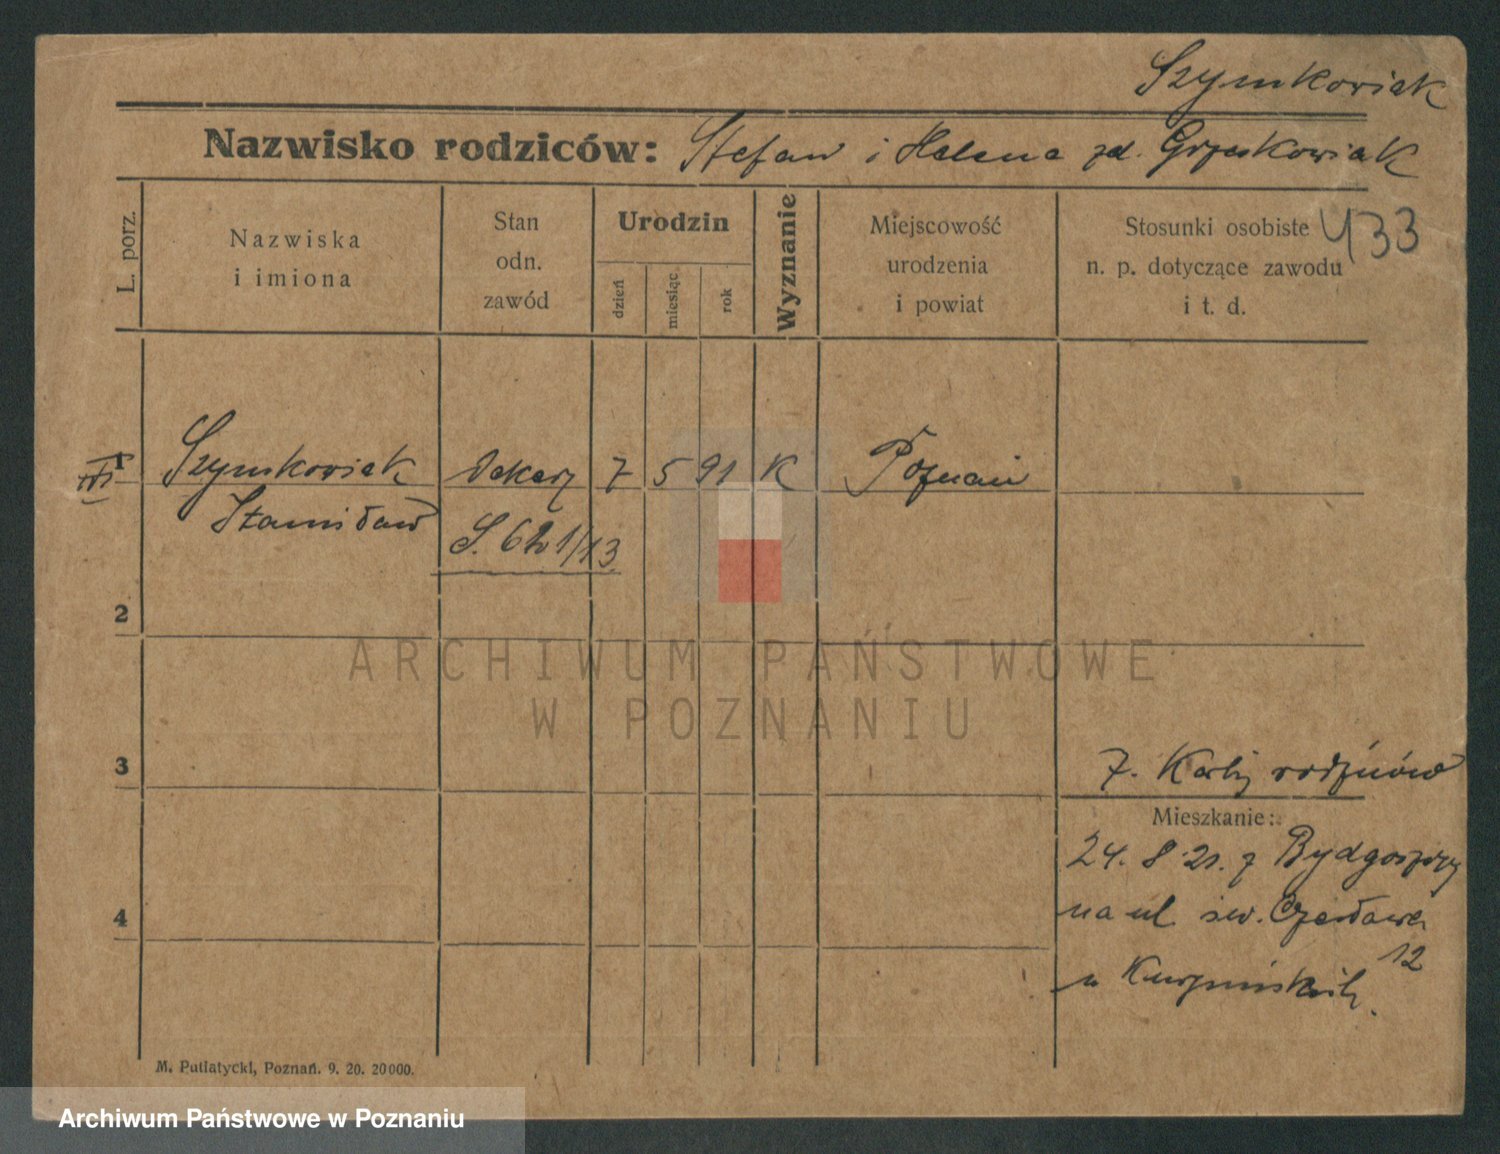 Szymkowiak
Nazwisko rodziców: Stefan i Helena zd. Grześkowiak
L. porz.
Nazwiska
i imiona
Stan
odn.
zawód
Urodzin
dzień
miesiąc
rok
Wyznanie
Miejscowość
urodzenia
i powiat
Stosunki osobiste
n. p. dotyczące zawodu
i t. d.
433
1 Szymkowiak dekarz 7 5 91 K Poznań
Stanisław
S. 621/13
2
3
z. Karty rodziców
Mieszkanie:
24. 8. 21. z Bydgoszczy
na ul św. Czesława
12
u
4
M. Putiatycki, Poznań. 9. 20. 20000.
ARCHIWUM PAŃSTWOWE
W POZNANIU
Archiwum Państwowe w Poznaniu